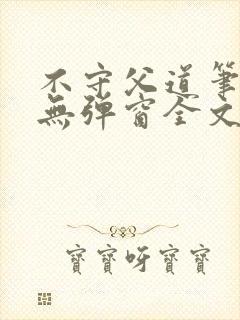 不守父道筆
無彈窗全文
寶寶呀寶寶